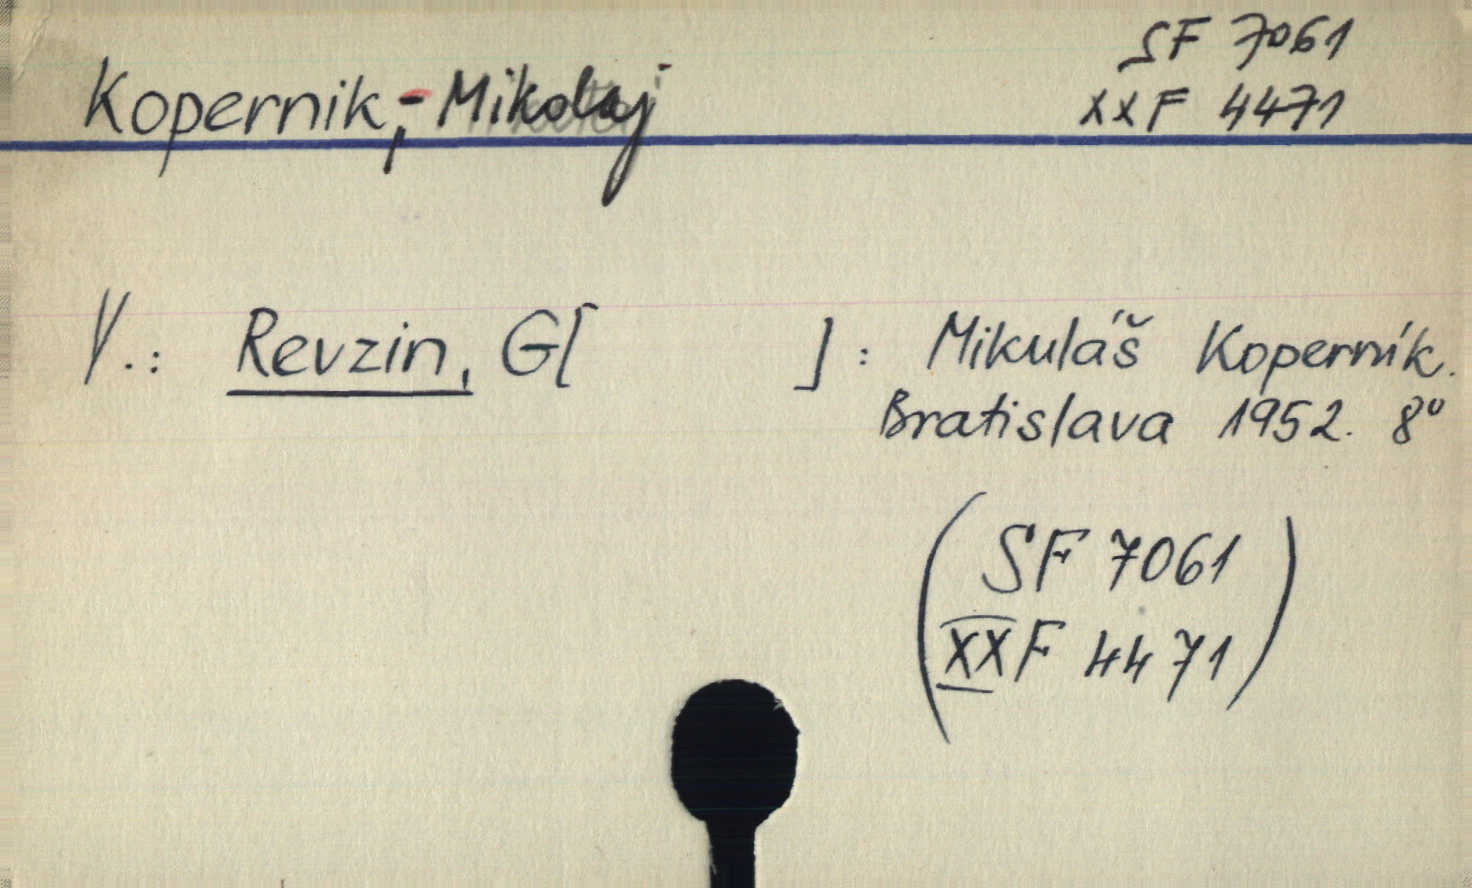 SF 7061
Kopernik,-Mikolaj
xxF 4471
V.: Revzin, G[ ]: Mikuláš Koperník.
Bratislava 1952. 8°
(SF 7061
XXF 4471)